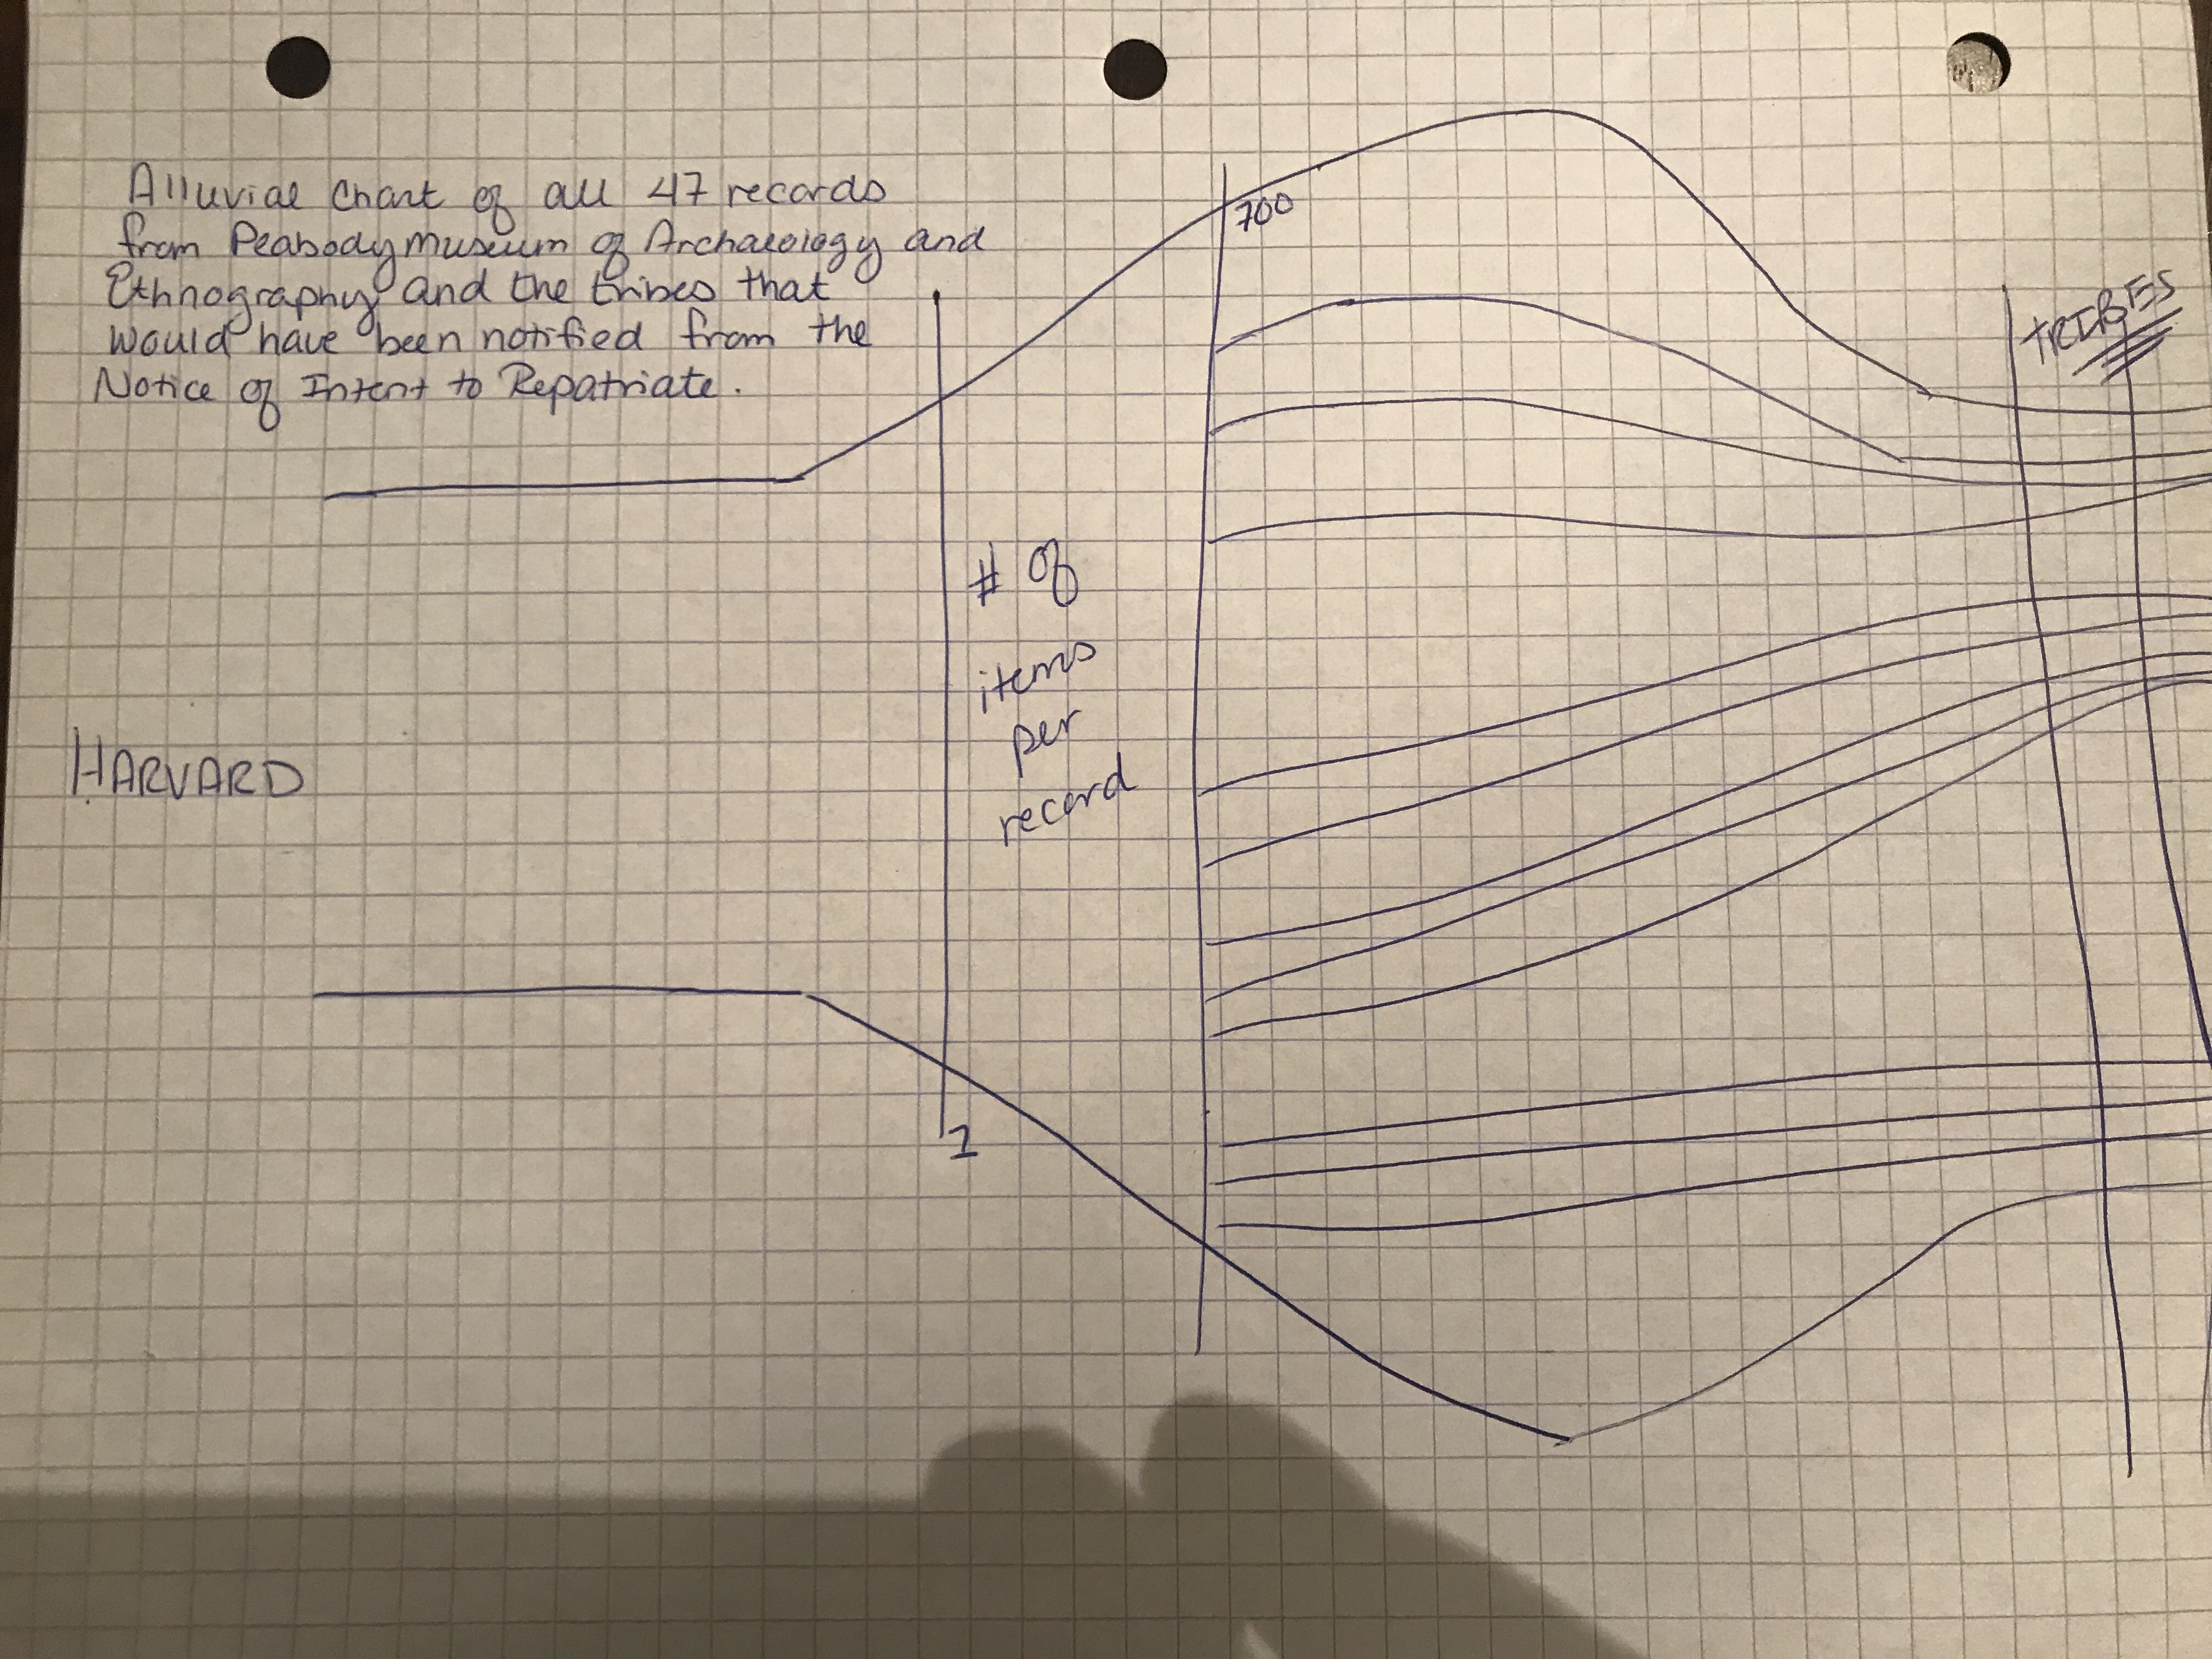 Alluvial Chart of all 47 records
from Peabody Museum of Archaeology and
Ethnography and the tribes that
would have been notified from the
Notice of Intent to Repatriate.
700
TRIBES
# of
items
per
record
HARVARD
1